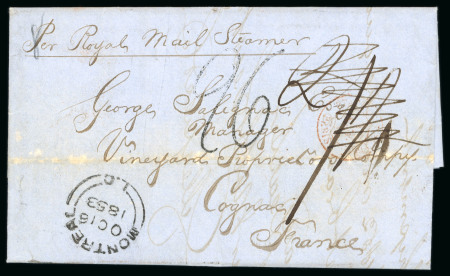 Per Royal Mail Steamer
26
George Salignac
Manager
Vineyard Proprietors Compy
Cognac
France
MONTREAL
L.C.
OC 16
1853